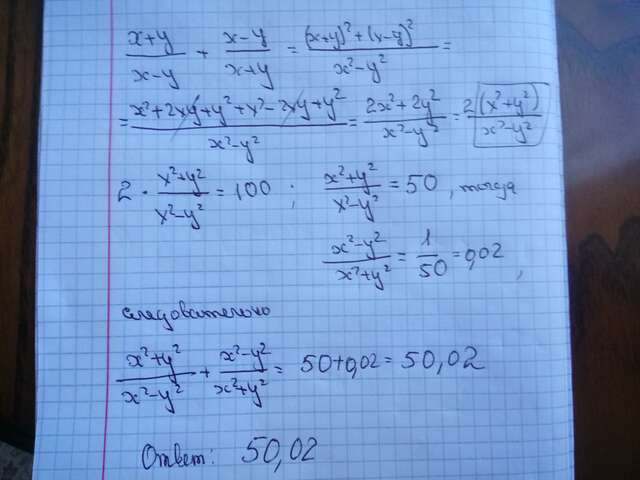 (x+y)/(x-y) + (x-y)/(x+y) = ((x+y)²+(x-y)²)/(x²-y²) =
= (x²+2xy+y²+x²-2xy+y²)/(x²-y²) = (2x²+2y²)/(x²-y²) = 2(x²+y²)/(x²-y²)
2·(x²+y²)/(x²-y²) = 100; (x²+y²)/(x²-y²) = 50, тогда
(x²-y²)/(x²+y²) = 1/50 = 0,02,
следовательно
(x²+y²)/(x²-y²) + (x²-y²)/(x²+y²) = 50+0,02 = 50,02
Ответ: 50,02